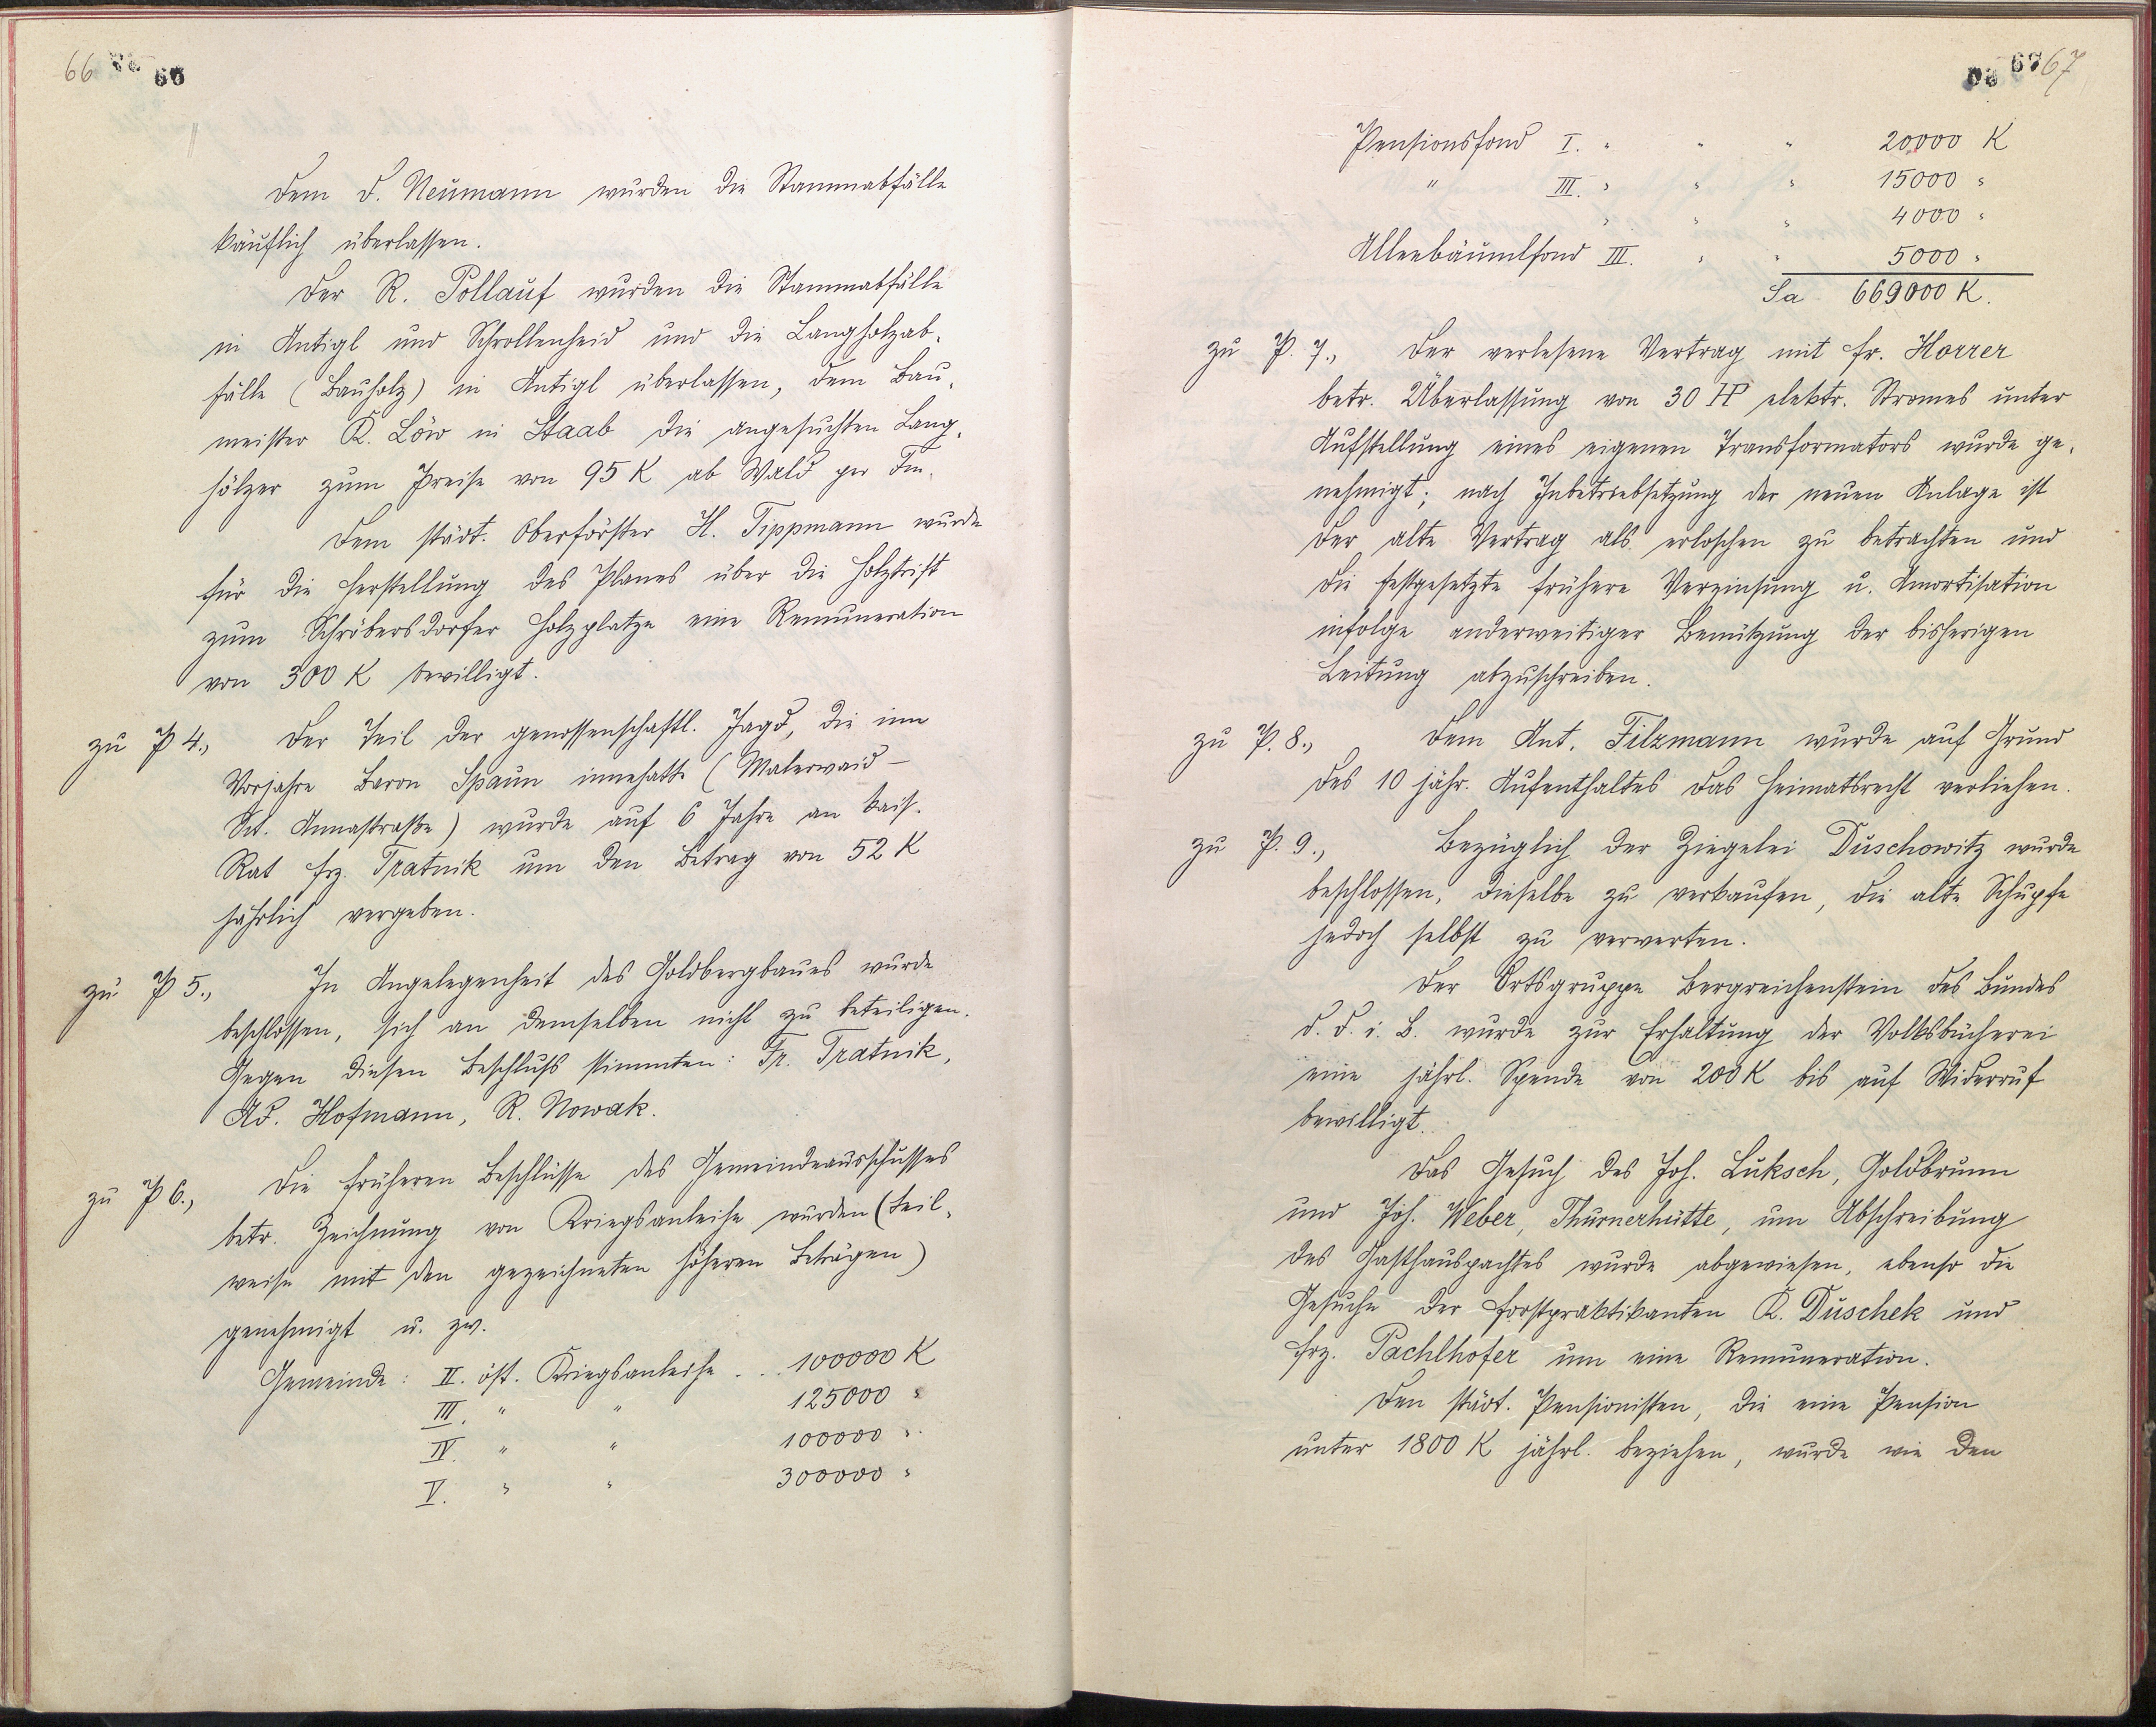 66
60
Dem D. Neumann wurden die Stammabfälle
käuflich überlassen.
Der R. Pollauf wurden die Stammabfälle
in Antigl und Schrollenheid und die Langholzab-
fälle (Bauholz) in Antigl überlassen, dem Bau-
meister K. Löw in Staab die angesuchten Lang-
hölzer zum Preise von 95 K ab Wald per Fm.
Dem städt. Oberförster H. Tippmann wurde
für die Herstellung des Planes über die Holztrift
zum Schröbersdorfer Holzplatze eine Remuneration
von 300 K bewilligt.
zu P 4., Der Teil der genossenschaftl. Jagd, die im
Vorjahre Baron Spaun innehatte (Malerwaid –
Skt. Annastraße) wurde auf 6 Jahre an kais.
Rat Frz. Tratnik um den Betrag von 52 K
jährlich vergeben.
zu P 5., In Angelegenheit des Goldbergbaues wurde
beschlossen, sich an demselben nicht zu beteiligen.
Gegen diesen Beschluss stimmten: Fr. Tratnik,
Ad. Hofmann, R. Nowak.
zu P 6., Die früheren Beschlüsse des Gemeindeausschusses
betr. Zeichnung von Kriegsanleihe wurden (teil-
weise mit den gezeichneten höheren Beträgen)
genehmigt u. zw.
Gemeinde: II. öst. Kriegsanleihe . . 100000 K
III. " " 125000 "
IV. " " 100000 "
V. " " 300000 "
67
Pensionsfond I. " " " 20000 K
" III. " " " 15000 "
" " " 4000 "
Alleebäumlfond III. " " 5000 "
Sa 669000 K.
zu P. 7., Der verlesene Vertrag mit Fr. Horrer
betr. Überlassung von 30 HP elektr. Stromes unter
Aufstellung eines eigenen Transformators wurde ge-
nehmigt; nach Inbetriebsetzung der neuen Anlage ist
der alte Vertrag als erloschen zu betrachten und
die festgesetzte frühere Verzinsung u. Amortisation
infolge anderweitiger Benützung der bisherigen
Leitung abzuschreiben.
zu P. 8., Dem Ant. Filzmann wurde auf Grund
des 10 jähr. Aufenthaltes das Heimatsrecht verliehen.
zu P. 9., Bezüglich der Ziegelei Duschowitz wurde
beschlossen, dieselbe zu verkaufen, die alte Schupfe
jedoch selbst zu verwerten.
Der Ortsgruppe Bergreichenstein des Bundes
d. D. i. B. wurde zur Erhaltung der Volksbücherei
eine jährl. Spende von 200 K bis auf Widerruf
bewilligt.
Das Gesuch des Joh. Luksch, Goldbrunn
und Joh. Weber, Thurnerhütte, um Abschreibung
des Gasthauspachtes wurde abgewiesen, ebenso die
Gesuche der Forstpraktikanten K. Duschek und
Frz. Pachlhofer um eine Remuneration.
Den städt. Pensionisten, die eine Pension
unter 1800 K jährl. beziehen, wurde wie den